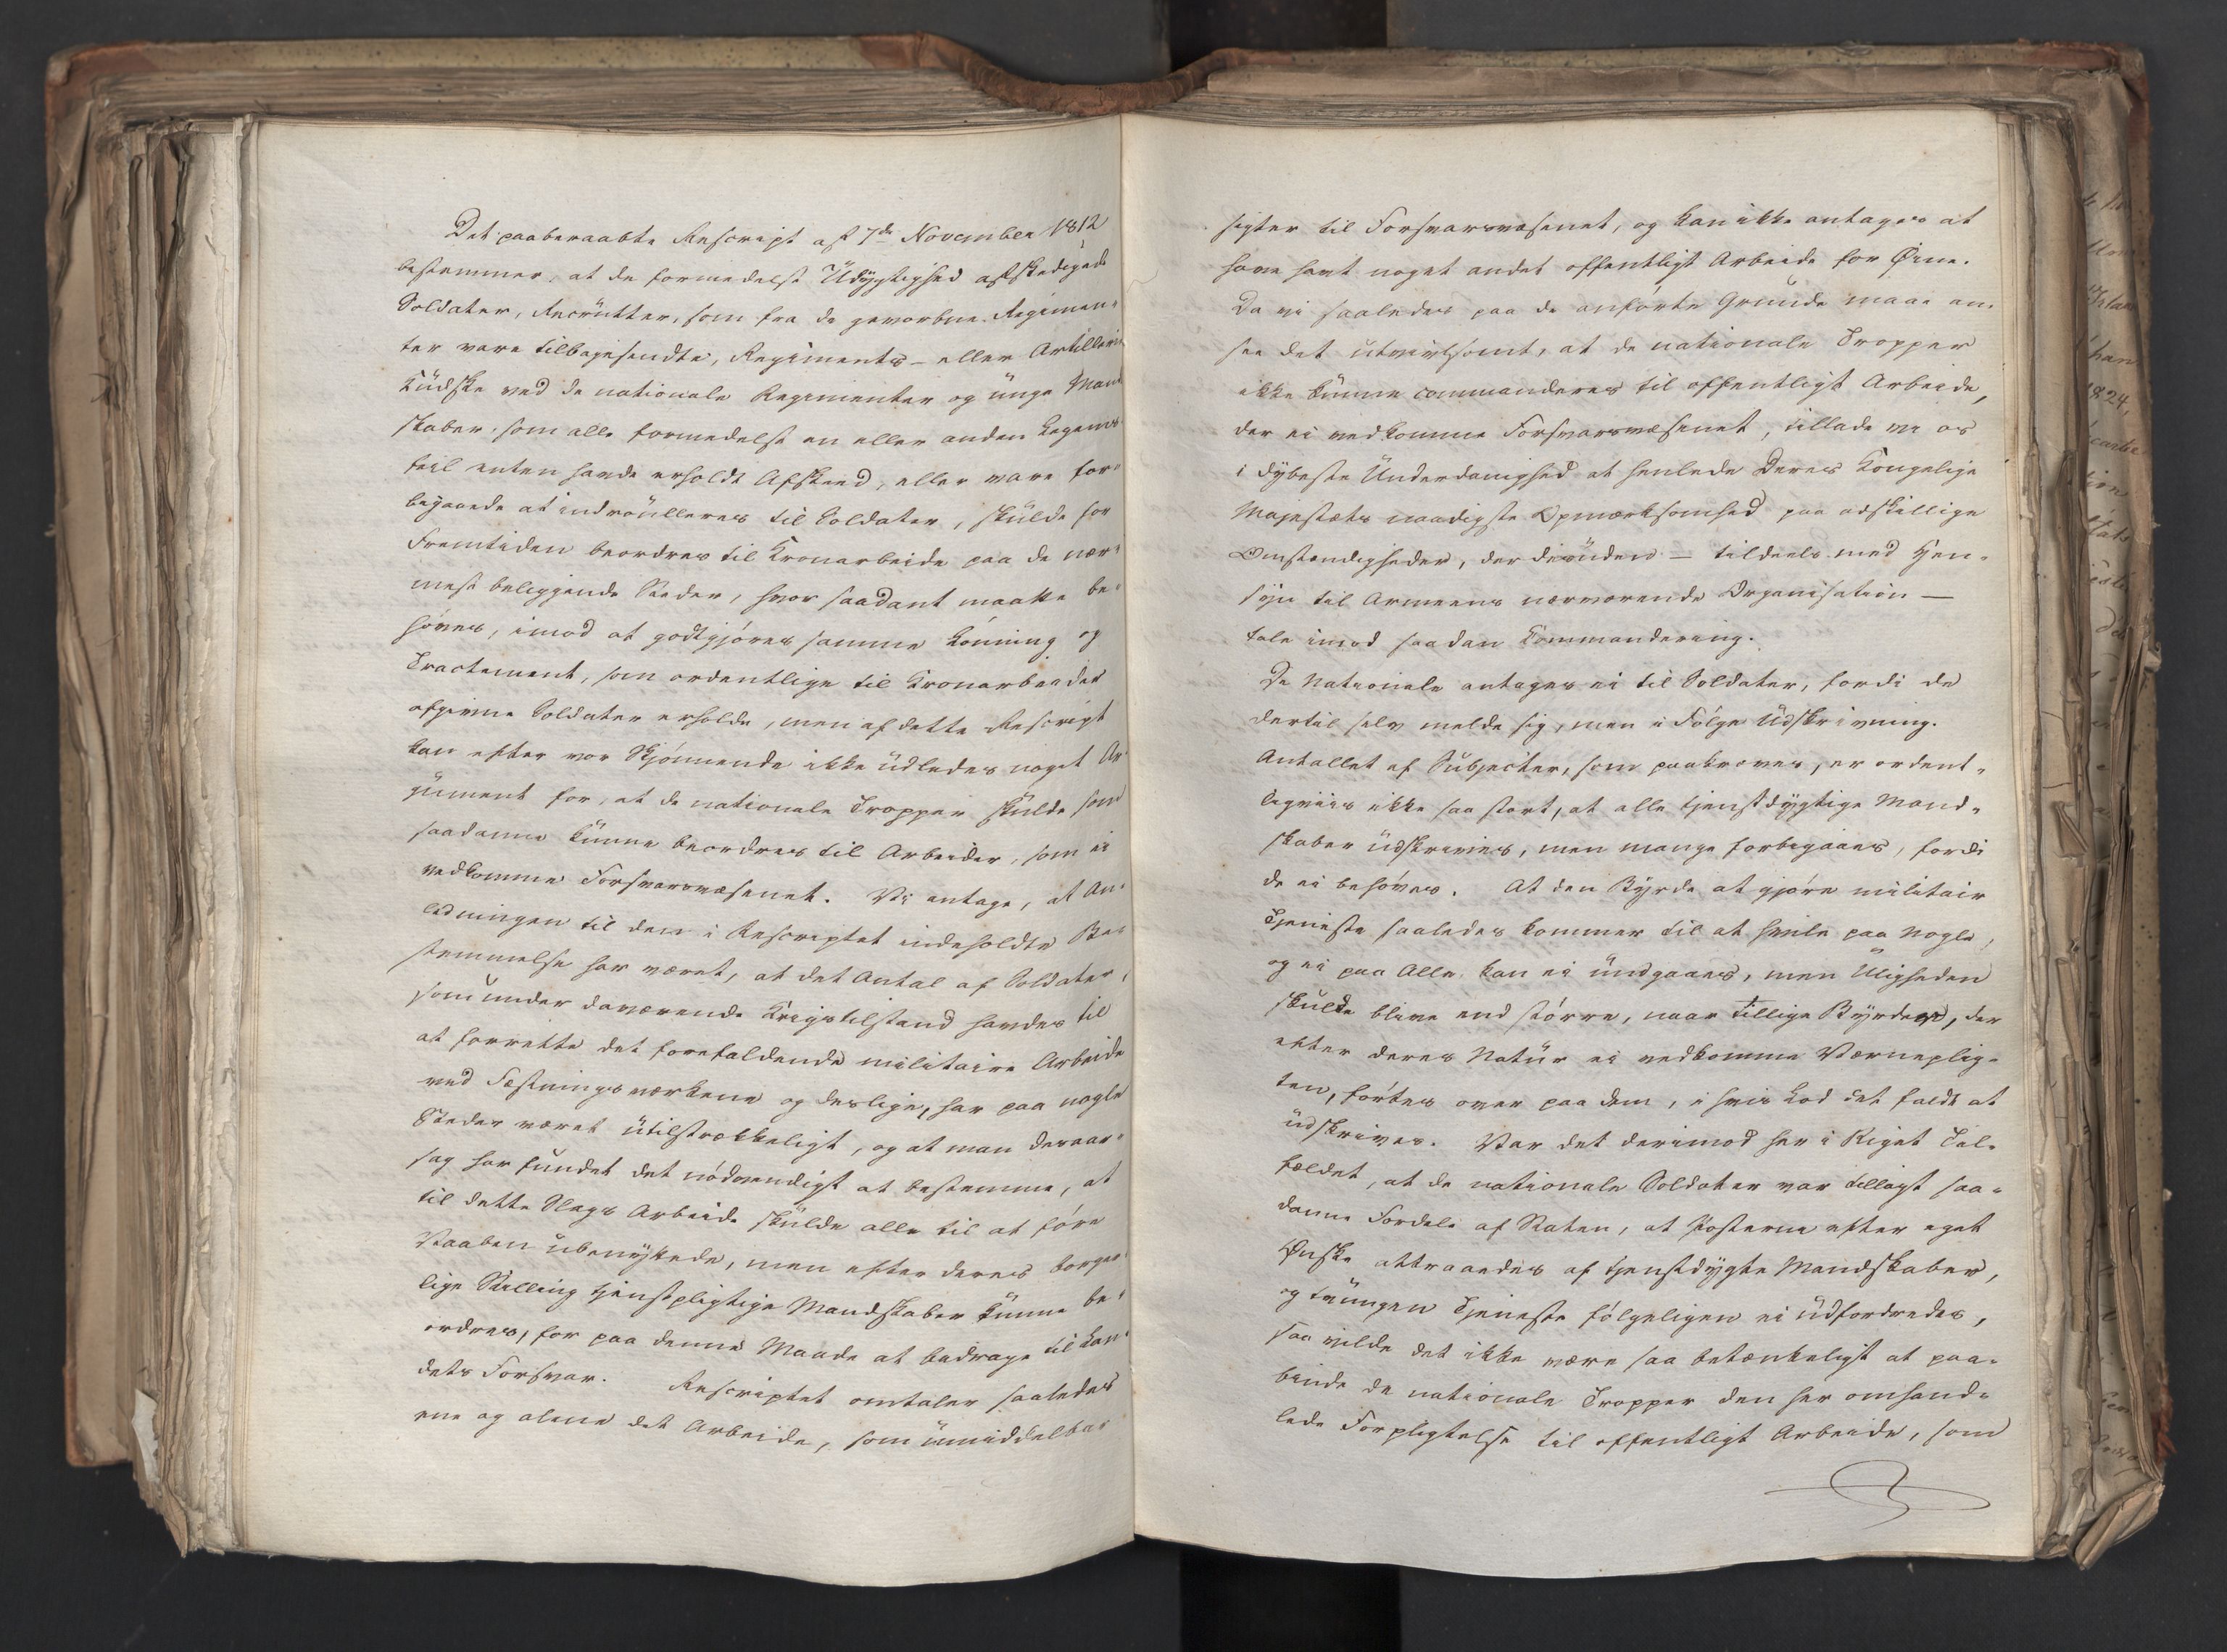 Det paaberaabte Rescript af 7de November 1812
bestemmer, at de formedelst Udygtighed afskedigede
Soldater, Recrutter, som fra de gevorbne Regimen-
ter vare tilbagesendte, Regiments- eller Artilleri
Kudske ved de nationale Regimenter og unge Mand
skaber, som alle formedelst en eller anden Legems
feil enten havde erholdt Afskeed, eller vare for-
bigaaede at indroulleres til Soldater, skulde for
Fremtiden beordres til Kronarbeide paa de nær-
mest beliggende Steder, hvor saadant maatte be-
høves, imod at godtgjøres samme Lønning og
Tractement, som ordentlige til Kronarbeidet
afgivne Soldater erholde, men af dette Rescript
kan efter vor Skjønnende ikke udledes noget Ar-
gument for, at de nationale Tropper skulde som
saadanne kunne beordres til Arbeider, som ei
vedkomme Forsvarsvæsenet. Vi antage, at An-
ledningen til den i Rescriptet indeholdte Be-
stemmelse har været, at det Antal af Soldater,
som under daværende Krigstilstand havdes til
at forrette det forefaldende militaire Arbeide
ved Fæstningsværkene og deslige, har paa nogle
Steder været utilstrækkeligt, og at man desaar-
sag har fundet det nødvendigt at bestemme, at
til dette Slags Arbeide skulde alle til at føre
Vaaben ubenyttede, men efter deres borger-
lige Stilling tjenstpligtige Mandskaber kunne be-
ordres, for paa denne Maade at bedrage til Lan-
dets Forsvar. Rescriptet omtaler saaledes
ene og alene det Arbeide, som umiddelbar
sigter til Forsvarsvæsenet, og kan ikke antages at
have havt noget andet offentligt Arbeide for Øine.
Da vi saaledes paa de anførte Grunde maae an-
see det utvivlsomt, at de nationale Tropper
ikke kunne commanderes til offentligt Arbeide,
der ei vedkomme Forsvarsvæsenet, tillade vi os
i dybeste Underdanighed at henlede Deres Kongelige
Majestæts naadigste Opmærksomhed paa adskillige
Omstændigheder, der desuden — tildeels med Hen-
syn til Armeens nærværende Organisation —
tale imod saadan Kommandering.
De Nationale antages ei til Soldater, fordi de
dertil selv melde sig, men i Følge Udskrivning.
Antallet af Subjecter, som paakræves, er ordent-
ligviis ikke saa stort, at alle tjenstdygtige Mand-
skaber udskrives, men mange forbigaaes, fordi
de ei behøves. At den Byrde at gjøre militair
Tjeneste saaledes kommer til at hvile paa Nogle,
og ei paa Alle, kan ei undgaaes, men Uligheden
skulde blive end større, naar tillige Byrder, der
efter deres Natur ei vedkomme Værneplig-
ten, førtes over paa dem, i hvis Lod det faldt at
udskrives. Var det derimod her i Riget Til-
fældet, at de nationale Soldater var tillagt saa-
danne Fordele af Staten, at Posterne efter eget
Ønske attraaedes af tjenstdygte Mandskaber,
og tvungen Tjeneste følgeligen ei udfordredes,
saa vilde det ikke være saa betænkeligt at paa-
binde de nationale Tropper den her omhand-
lede Forpligtelse til offentligt Arbeide, som